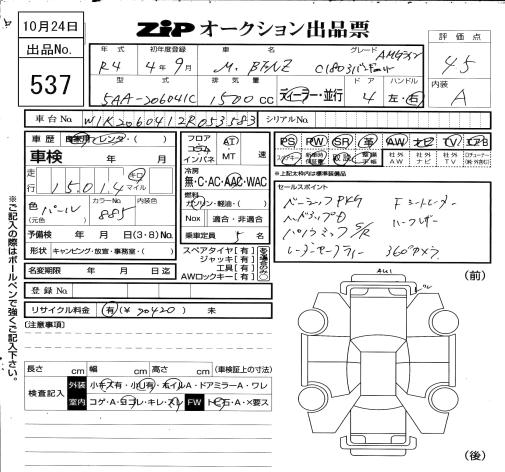 10月24日
出品No.
537
ZiP オークション出品票
評価点
4.5
内装
A
年式 初年度登録 車名 グレード
R4 4年9月 M・BENZ C180
型式 排気量 ドア ハンドル
5AA-206041C 1500cc ディーラー・並行 4 左・右
車台No. W1K2060412R053583 シリアルNo.
車歴 自家用・レンタ・( )
車検 年 月
走行 15,014 キロ マイル
色 パール (元色) カラーNo. 885 内装色
予備検 年 月 日(3・8)No.
形状 キャンピング・放宣・事務室・( )
名変期限 年 月 日迄
登録No.
リサイクル料金 有(¥ ) 未
フロア コラム インパネ AT MT 速
冷房 無・C・AC・AAC・WAC
燃料 ガソリン・軽油・( )
Nox 適合・非適合
乗車定員 5 名
スペアタイヤ[有]
ジャッキ[有]
工具[有]
AWロックキー[有]
PS PW SR 革 AW ナビ TV エアB
社外AW 社外ナビ 社外TV
※上記太枠内は標準装備品
セールスポイント
ベーシックPKG Fシートヒーター
パノラミックS/R ハーフレザー
レーダーセーフティー 360°カメラ
[注意事項]
長さ cm 幅 cm 高さ cm (車検証上の寸法)
検査記入 外装 小キズ有・小U有・ホイルA・ドアミラーA・ワレ
室内 コゲ・A・ヨゴレ・キレ・スレ FW トビ石・A・×要ス
※ご記入の際はボールペンで強くご記入下さい。
(前)
AU1
(後)